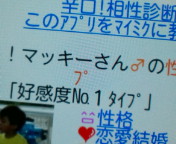 辛口!相性診断
このアプリをマイミクに教
!マッキーさん♂の性
「好感度No.1 タイプ」
性格
❤恋愛結婚